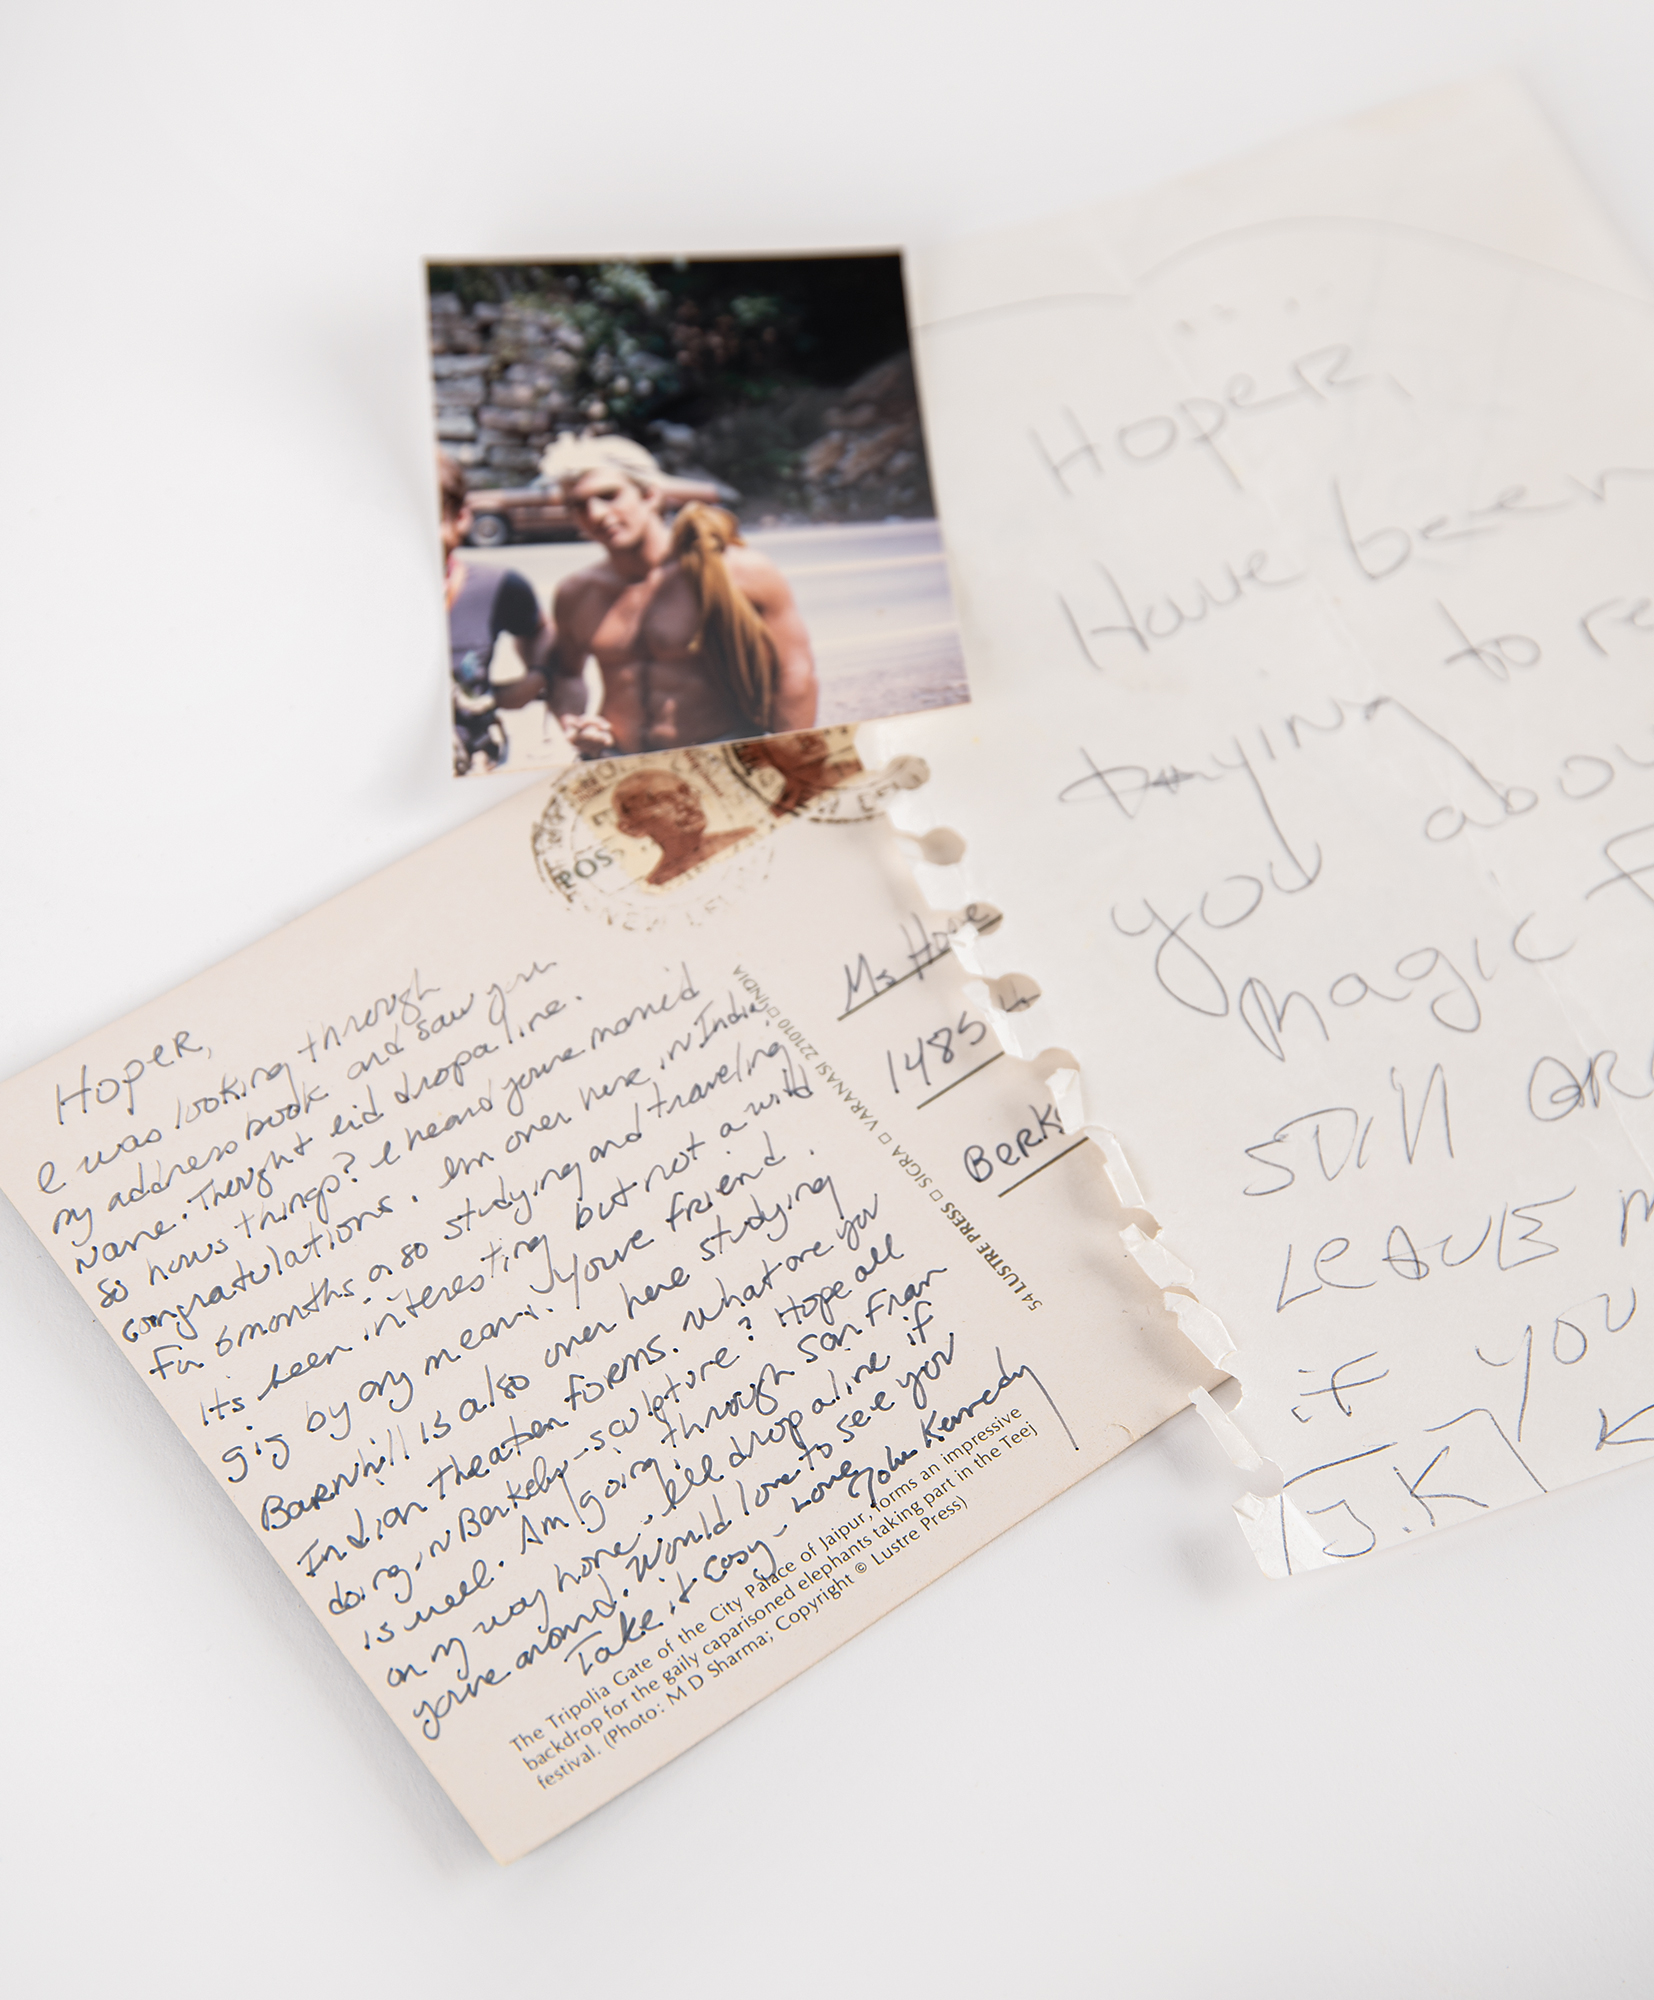 Hoper,
I was looking through
my address book and saw your
name. Thought I'd drop a line.
So hows things? I heard youre married
congratulations. Im over here in India
for 6 months or so studying and traveling
Its been interesting but not a wild
gig by any means. Youre friend
Barnhill is also over here studying
Indian theater forms. What are you
doing in Berkeley - sculpture? Hope all
is well. Am going through San Fran
on my way home. Ill drop a line if
youre around. Would love to see you
Take it easy - Love,
John Kennedy
The Tripolia Gate of the City Palace of Jaipur, forms an impressive
backdrop for the gaily caparisoned elephants taking part in the Teej
festival. (Photo: M D Sharma; Copyright © Lustre Press)
54 LUSTRE PRESS □ SIGRA □ VARANASI 221010 □ INDIA
Ms Hope
1485
Berk
POS
NEW DEL
Hoper,
Have been
trying to re
you abou
magic F
still are
LEAVE m
if you
J.K.